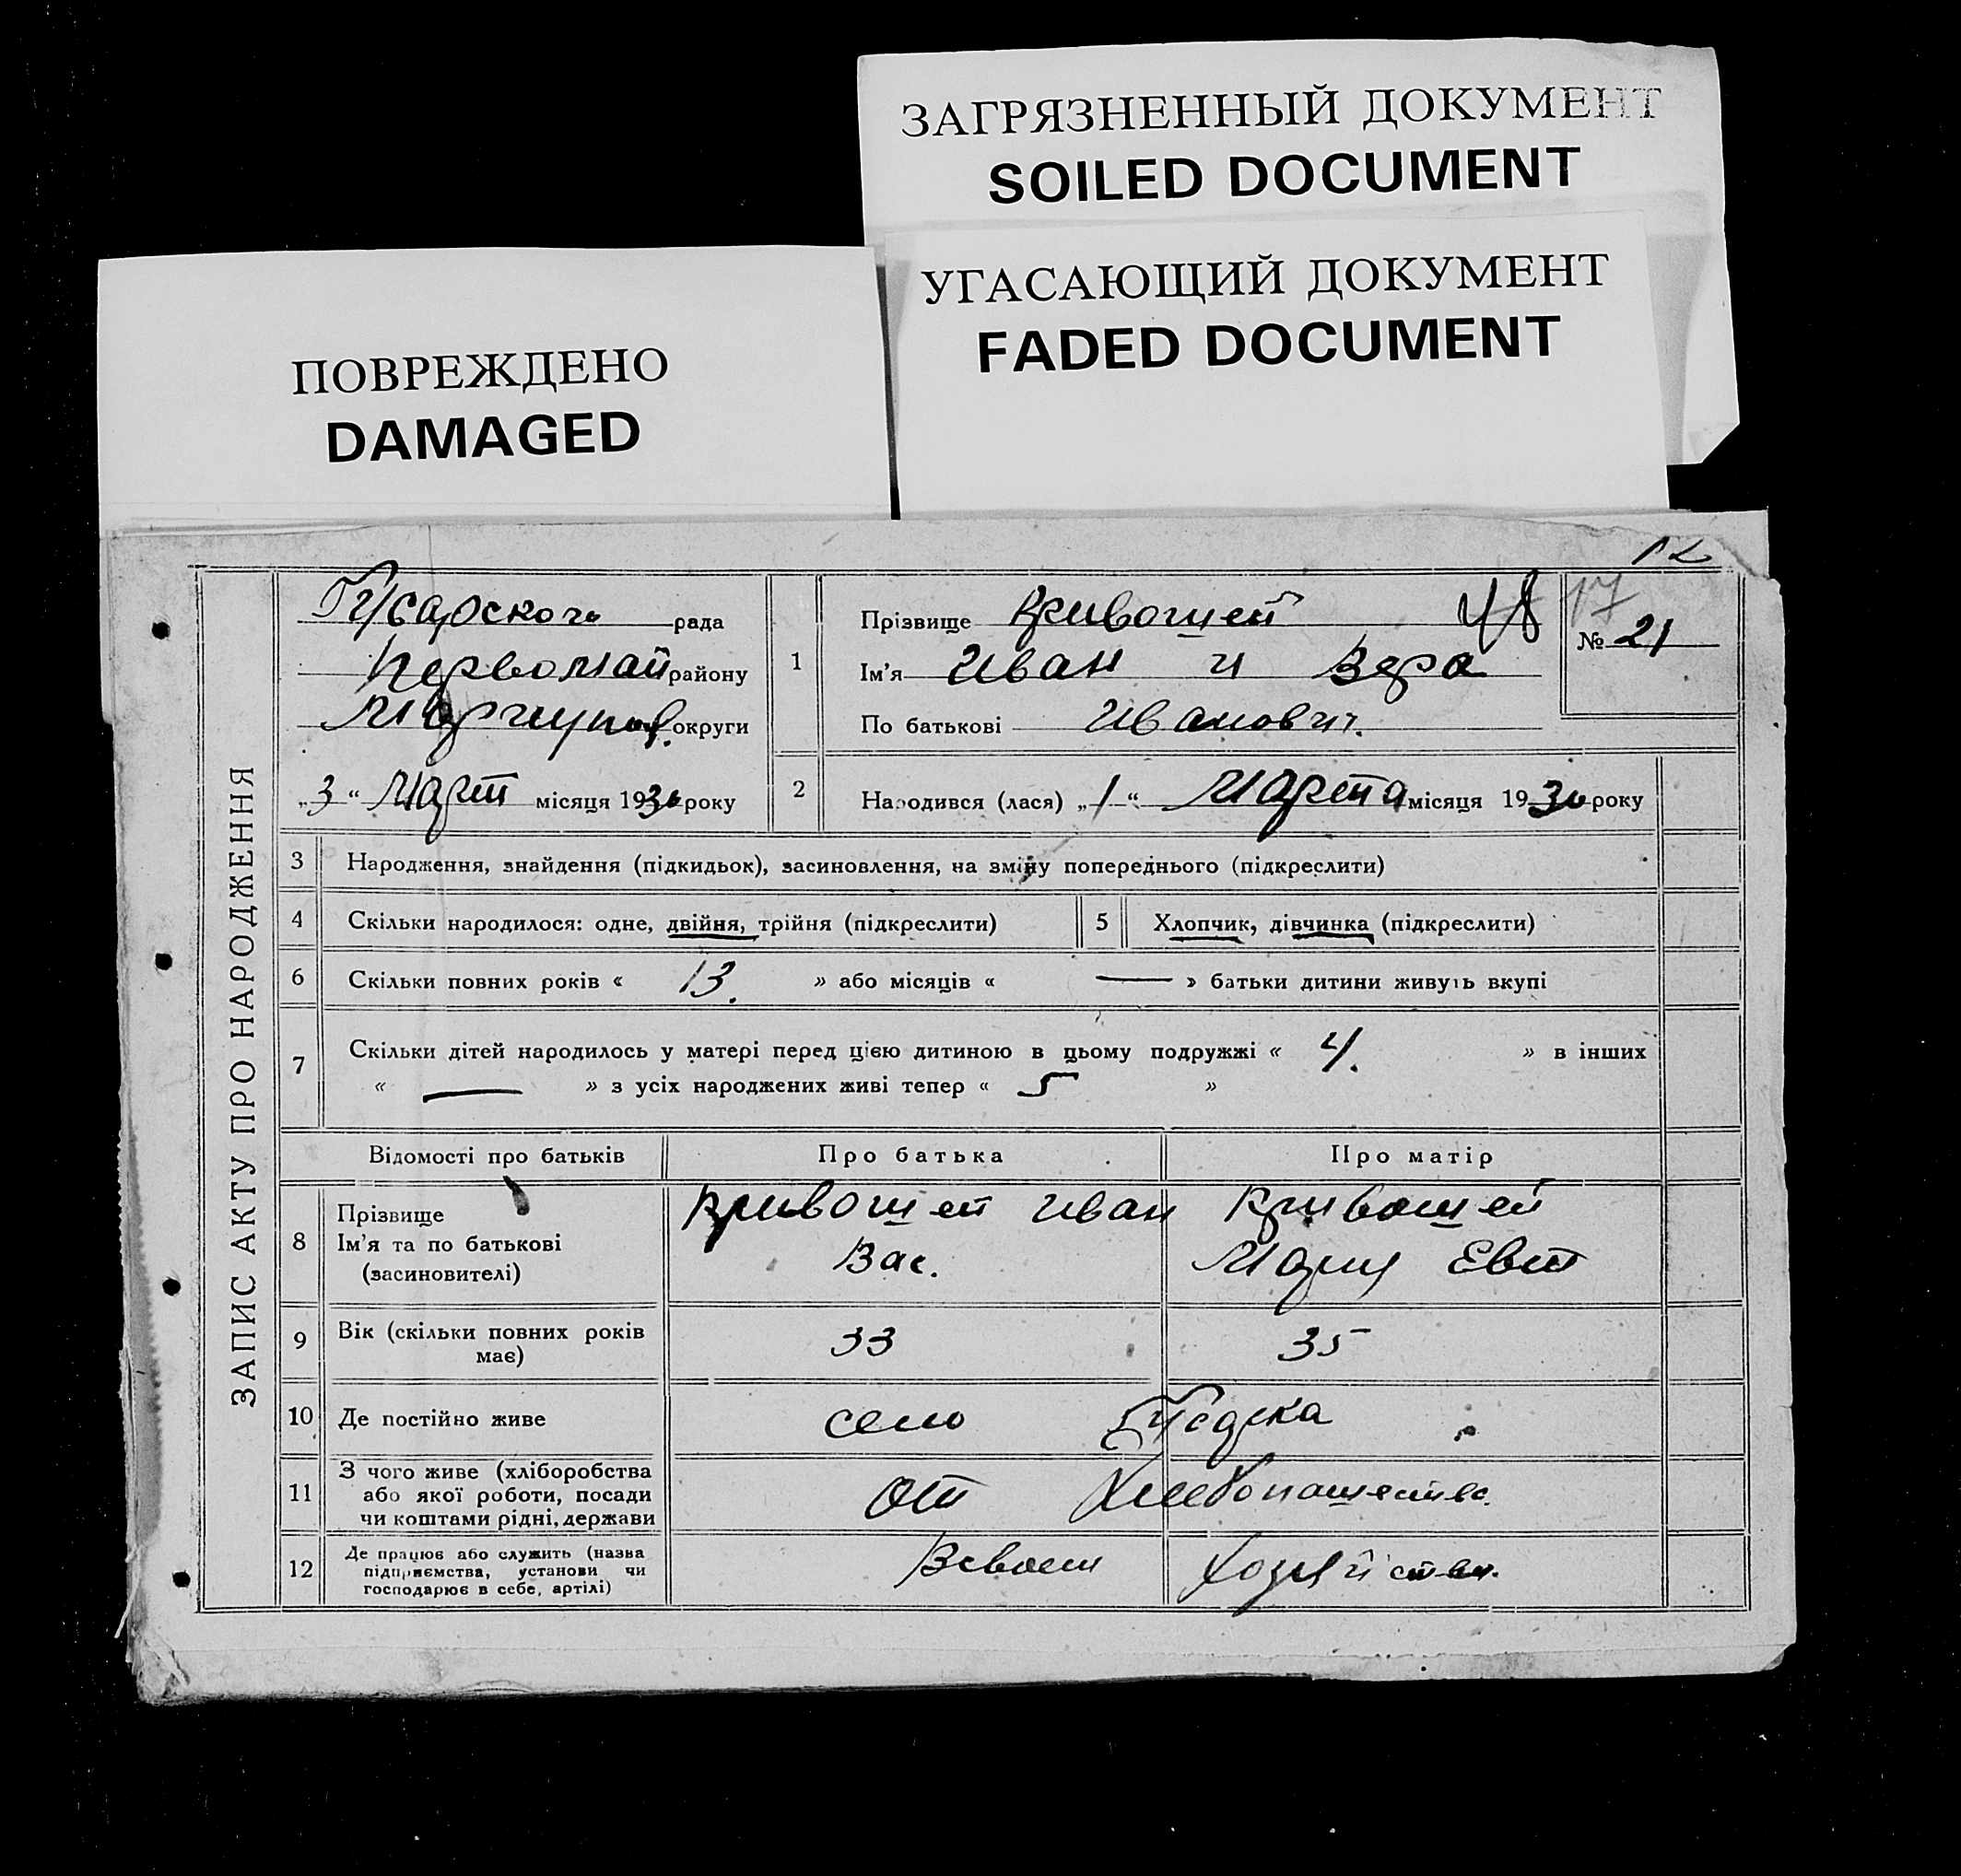 ЗАГРЯЗНЕННЫЙ ДОКУМЕНТ
SOILED DOCUMENT
УГАСАЮЩИЙ ДОКУМЕНТ
FADED DOCUMENT
ПОВРЕЖДЕНО
DAMAGED
12
ЗАПИС АКТУ ПРО НАРОДЖЕННЯ
рада
Первомай району
округи
„3“ Март місяця 1930 року
1
Прізвище Кривошей
Ім'я Иван и Вера
По батькові Иванович.
17
№ 21
2
Народився (лася) „1“ Марта місяця 1930 року
3 Народження, знайдення (підкидьок), засиновлення, на зміну попереднього (підкреслити)
4 Скільки народилося: одне, двійня, трійня (підкреслити)
5 Хлопчик, дівчинка (підкреслити)
6 Скільки повних років « 13. » або місяців « — » батьки дитини живуть вкупі
7 Скільки дітей народилось у матері перед цією дитиною в цьому подружжі « 4. » в інших
« — » з усіх народжених живі тепер « 5 »
Відомості про батьків Про батька Про матір
8 Прізвище
Ім'я та по батькові
(засиновителі)
Кривошей Иван
Вас.
Кривошей
Мария Евт
9 Вік (скільки повних років
має)
33 35
10 Де постійно живе село
11 З чого живе (хліборобства
або якої роботи, посади
чи коштами рідні, держави
от Хлебопашества.
12 Де працює або служить (назва
підприємства, установи чи
господарює в себе, артілі)
В своем хозяйстве.